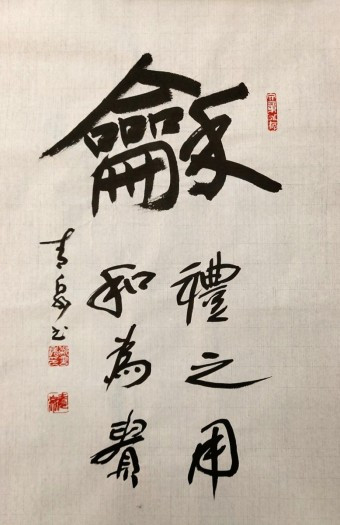 龢
禮之用
和為貴
青泉书